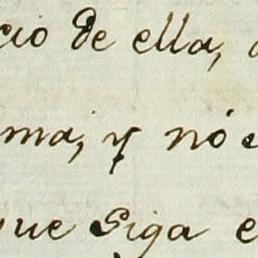 cio de ella,
ma, y nó e
que Siga e